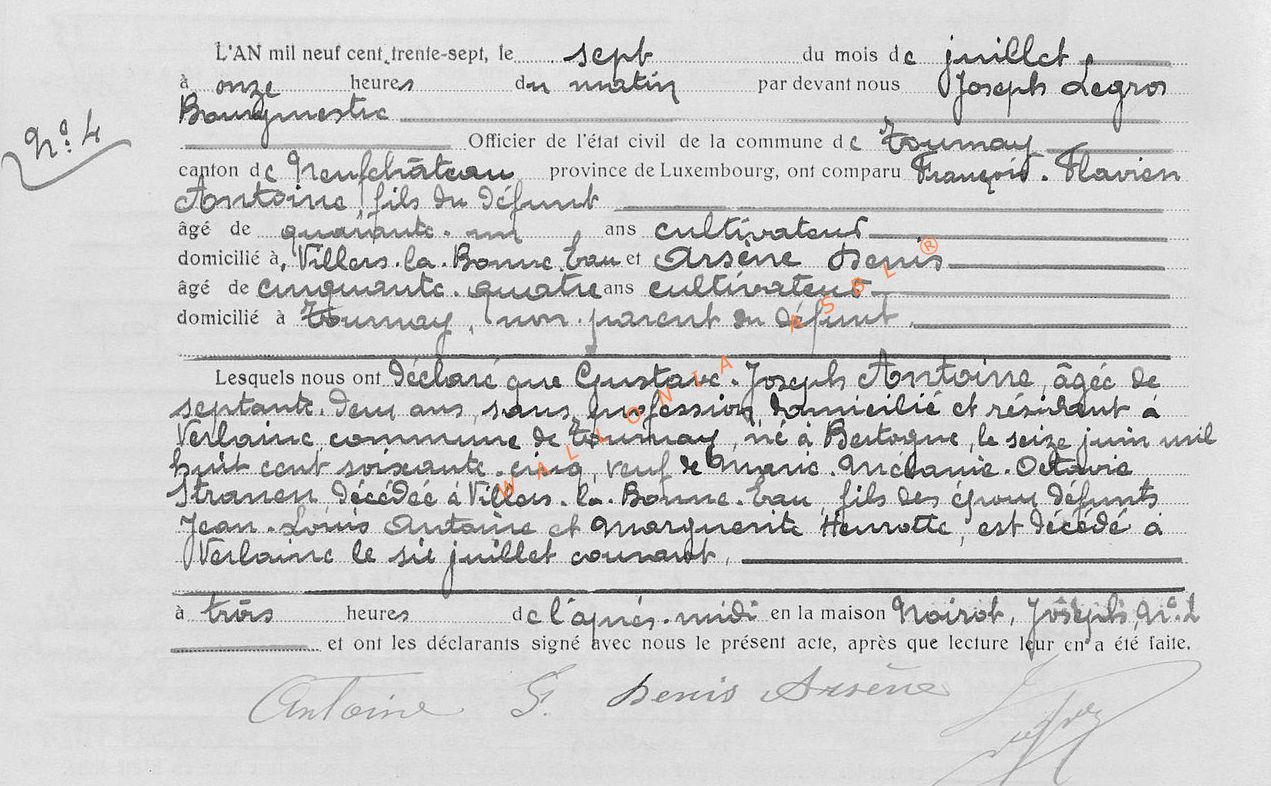 L'AN mil neuf cent trente-sept, le sept du mois de juillet,
à onze heures du matin par devant nous Joseph Legros
Bourgmestre
Nº. 4
Officier de l'état civil de la commune de Tournay
canton de Neufchâteau province de Luxembourg, ont comparu François-Flavien
Antoine, fils du défunt
âgé de quarante-un ans cultivateur
domicilié à, Villers-la-Bonne-Eau et Arsène Denis
âgé de cinquante-quatre ans cultivateur
domicilié à Tournay, non parent du défunt.
Lesquels nous ont déclaré que Gustave-Joseph Antoine, âgée de
septante-deux ans, sans profession, domicilié et résidant à
Verlaine commune de Tournay, né à Bertogne, le seize juin mil
huit cent soixante-cinq, veuf de Marie-Mélanie-Octavie
décédée à Villers-la-Bonne-Eau, fils des époux défunts
Jean-Louis Antoine et Marguerite Henrotte, est décédé à
Verlaine le six juillet courant,
à trois heures de l'après-midi en la maison Noirot, Joseph, Nº.
et ont les déclarants signé avec nous le présent acte, après que lecture leur en a été faite.
Antoine F. Denis Arsène
WALLONIA ASBL ®